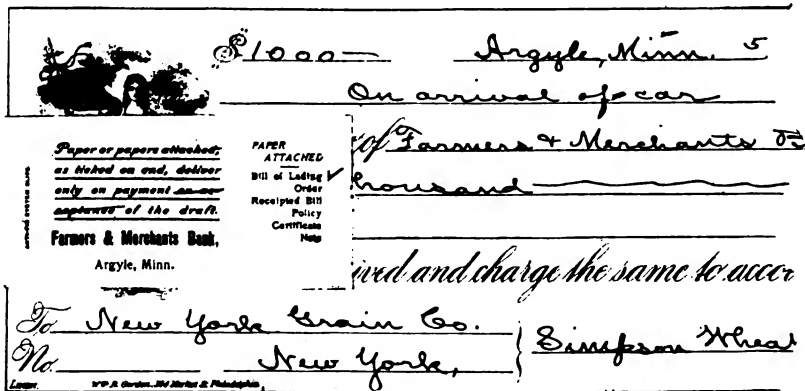 $1000— Argyle, Minn. 5
On arrival of car
of Farmers & Merchants
housand
ived and charge the same to accor
Paper or papers attached,
as ticked on end, deliver
only on payment or ac-
ceptance of the draft.
Farmers & Merchants Bank,
Argyle, Minn.
PAPER
ATTACHED
Bill of Lading ✓
Order
Receipted Bill
Policy
Certificate
Note
To New York Grain Co.
No. New York,
Simpson Wheat